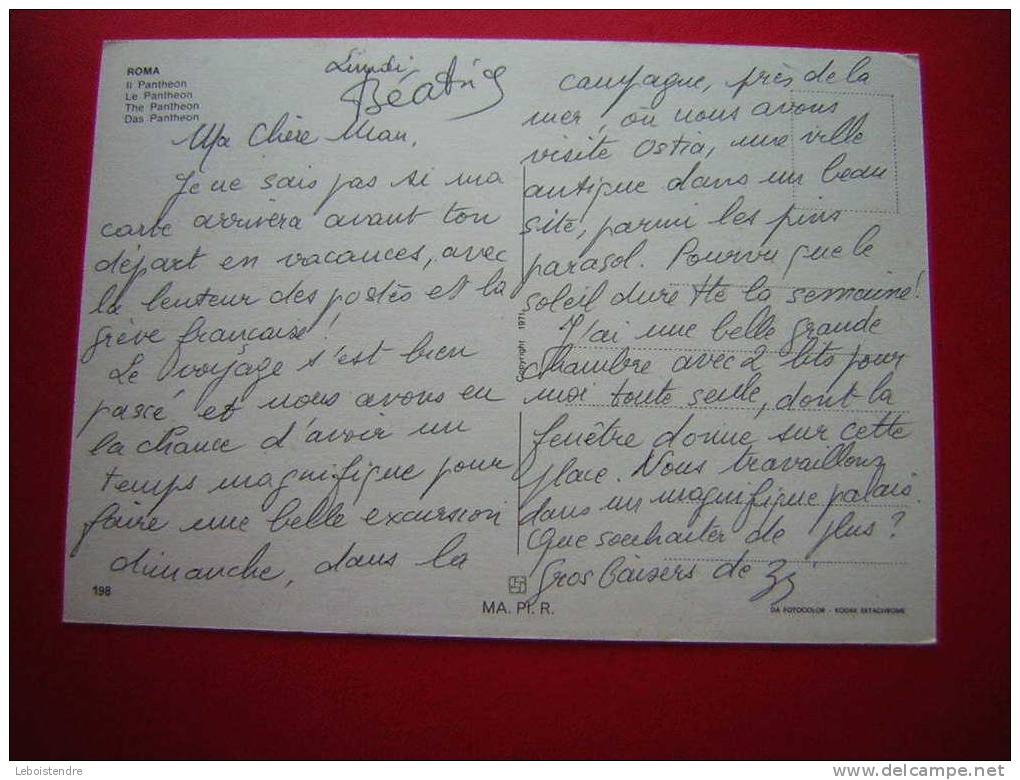 ROMA
Il Pantheon
Le Pantheon
The Pantheon
Das Pantheon
Lundi
Béatrice
Ma Chère Mian,
Je ne sais pas si ma
carte arrivera avant ton
départ en vacances, avec
la lenteur des postes et la
grève française!
Le voyage s'est bien
passé et nous avons eu
la chance d'avoir un
temps magnifique pour
faire une belle excursion
dimanche, dans la
198
campagne, près de la
mer, où nous avons
visité Ostia, une ville
antique dans un beau
site, parmi les pins
parasol. Pourvu que le
soleil dure tte la semaine!
J'ai une belle grande
chambre avec 2 lits pour
moi toute seule, dont la
fenêtre donne sur cette
place. Nous travaillons
dans un magnifique palais.
Que souhaiter de plus?
Gros baisers de
Copyright 1971
MA. PI. R.
DA FOTOCOLOR - KODAK EKTACHROME
Leboistendre
delcampe.net